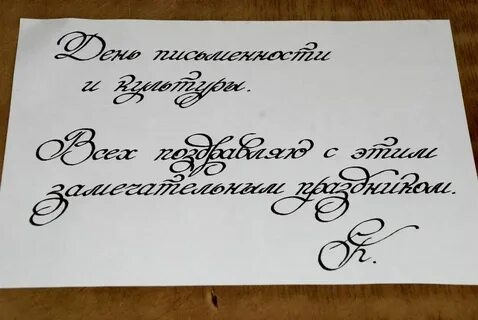 День письменности
и культуры.
Всех поздравляю с этим
замечательным праздником.
ЕК.